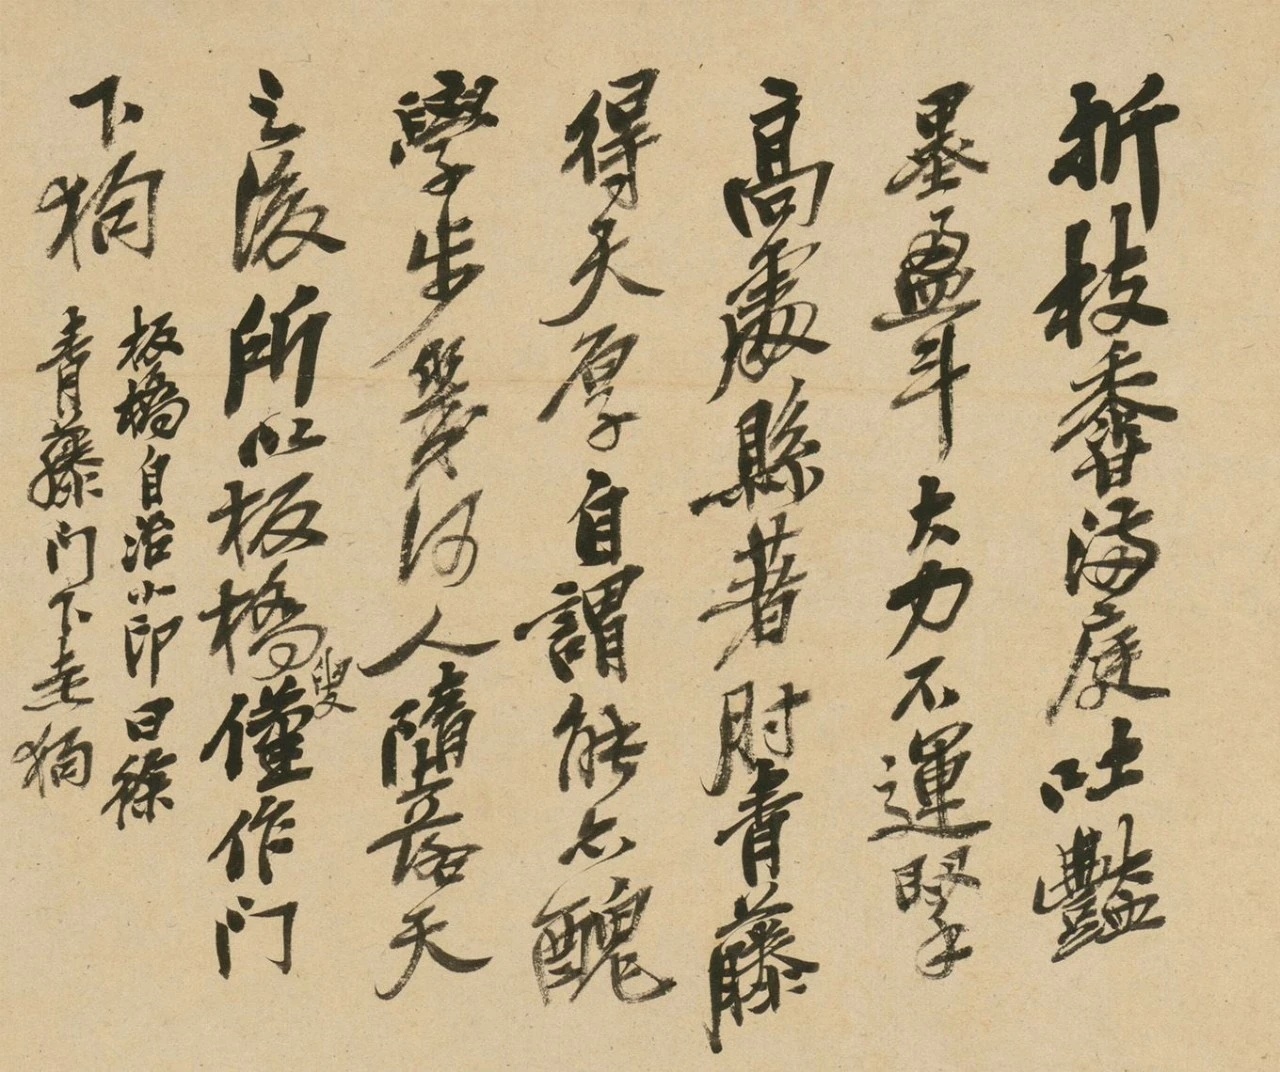 折枝香滿庭吐豔
墨盈斗大力不運掔
高處縣著肘青藤
得天厚自謂能亦醜
學步幾何人隋落天
之後所以板橋叟僅作门
下狗
板橋自治小印曰徐
青藤门下走狗